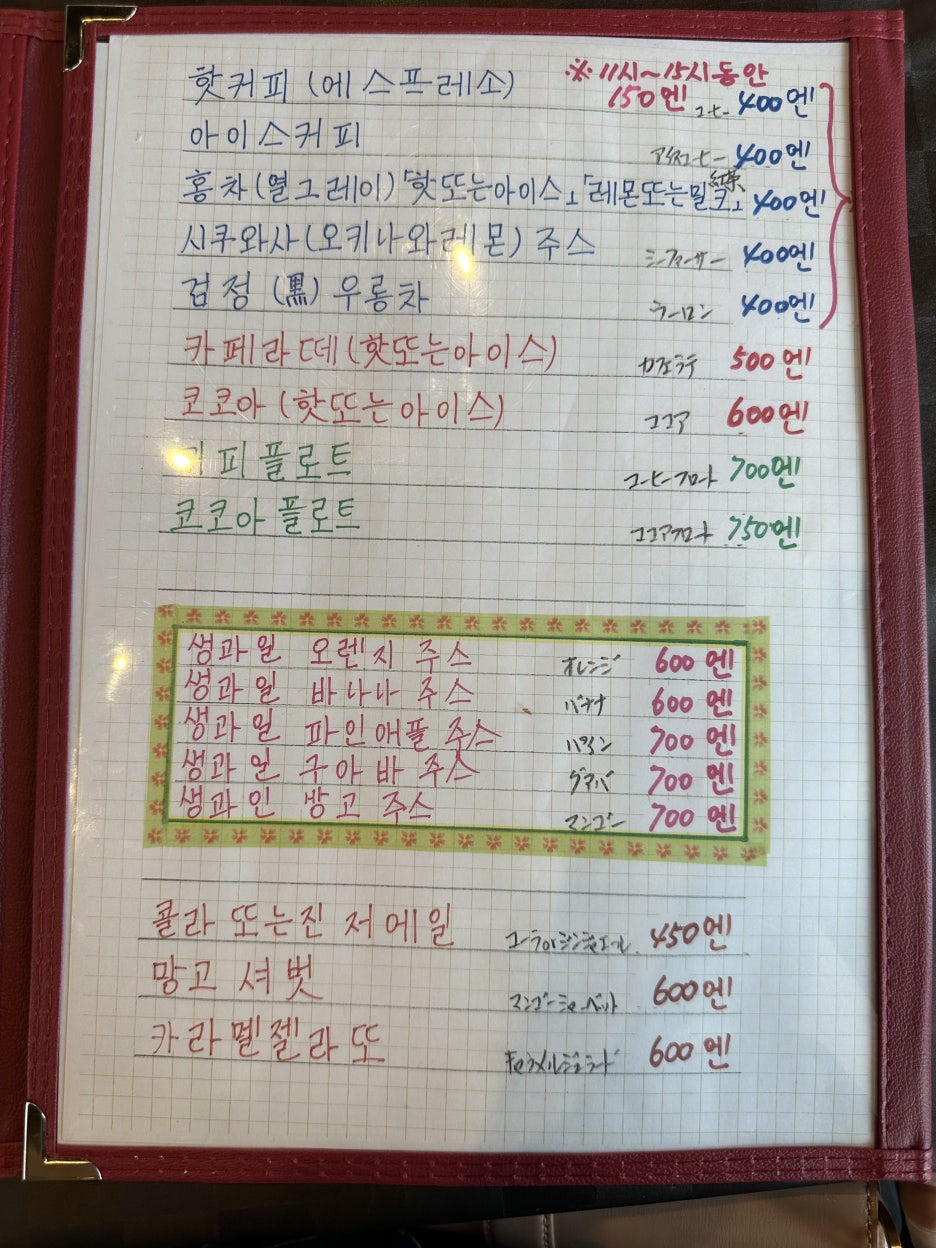 핫커피 (에스프레소) ※ 11시~15시동안 150엔 コーヒー 400엔
아이스커피 アイスコーヒー 400엔
홍차(얼그레이)「핫또는아이스」「레몬또는밀크」 紅茶 400엔
시쿠와사(오키나와레몬) 주스 シークァーサー 400엔
검정 (黒) 우롱차 ウーロン 400엔
카페라떼(핫또는아이스) カフェラテ 500엔
코코아 (핫또는아이스) ココア 600엔
커피플로트 コーヒーフロート 700엔
코코아플로트 ココアフロート 750엔
생과일 오렌지 주스 オレンジ 600엔
생과일 바나나 주스 バナナ 600엔
생과일 파인애플 주스 パイン 700엔
생과일 구아바 주스 グアバ 700엔
생과인 망고 주스 マンゴー 700엔
콜라 또는진 저에일 コーラorジンジャエール 450엔
망고 셔벗 マンゴーシャーベット 600엔
카라멜젤라또 キャラメルジェラード 600엔